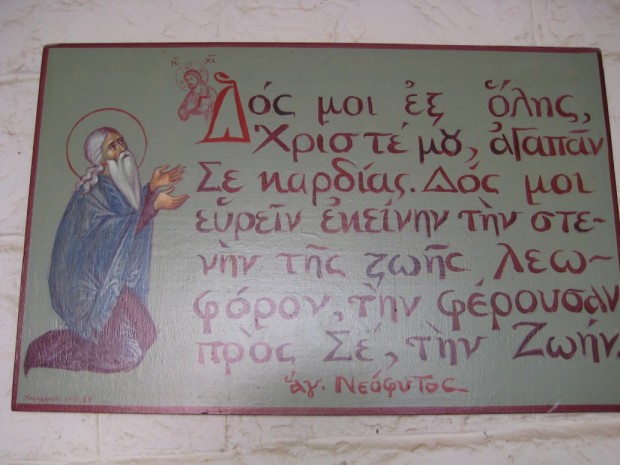 ΙC ΧC
Δός μοι ἐξ ὅλης,
Χριστέ μου, ἀγαπᾶν
Σε καρδίας. Δός μοι
εὑρεῖν ἐκείνην τὴν στε-
νὴν τῆς ζωῆς λεω-
φόρον, τὴν φέρουσαν
πρὸς Σέ, τὴν Ζωήν.
ἁγ. Νεόφυτος